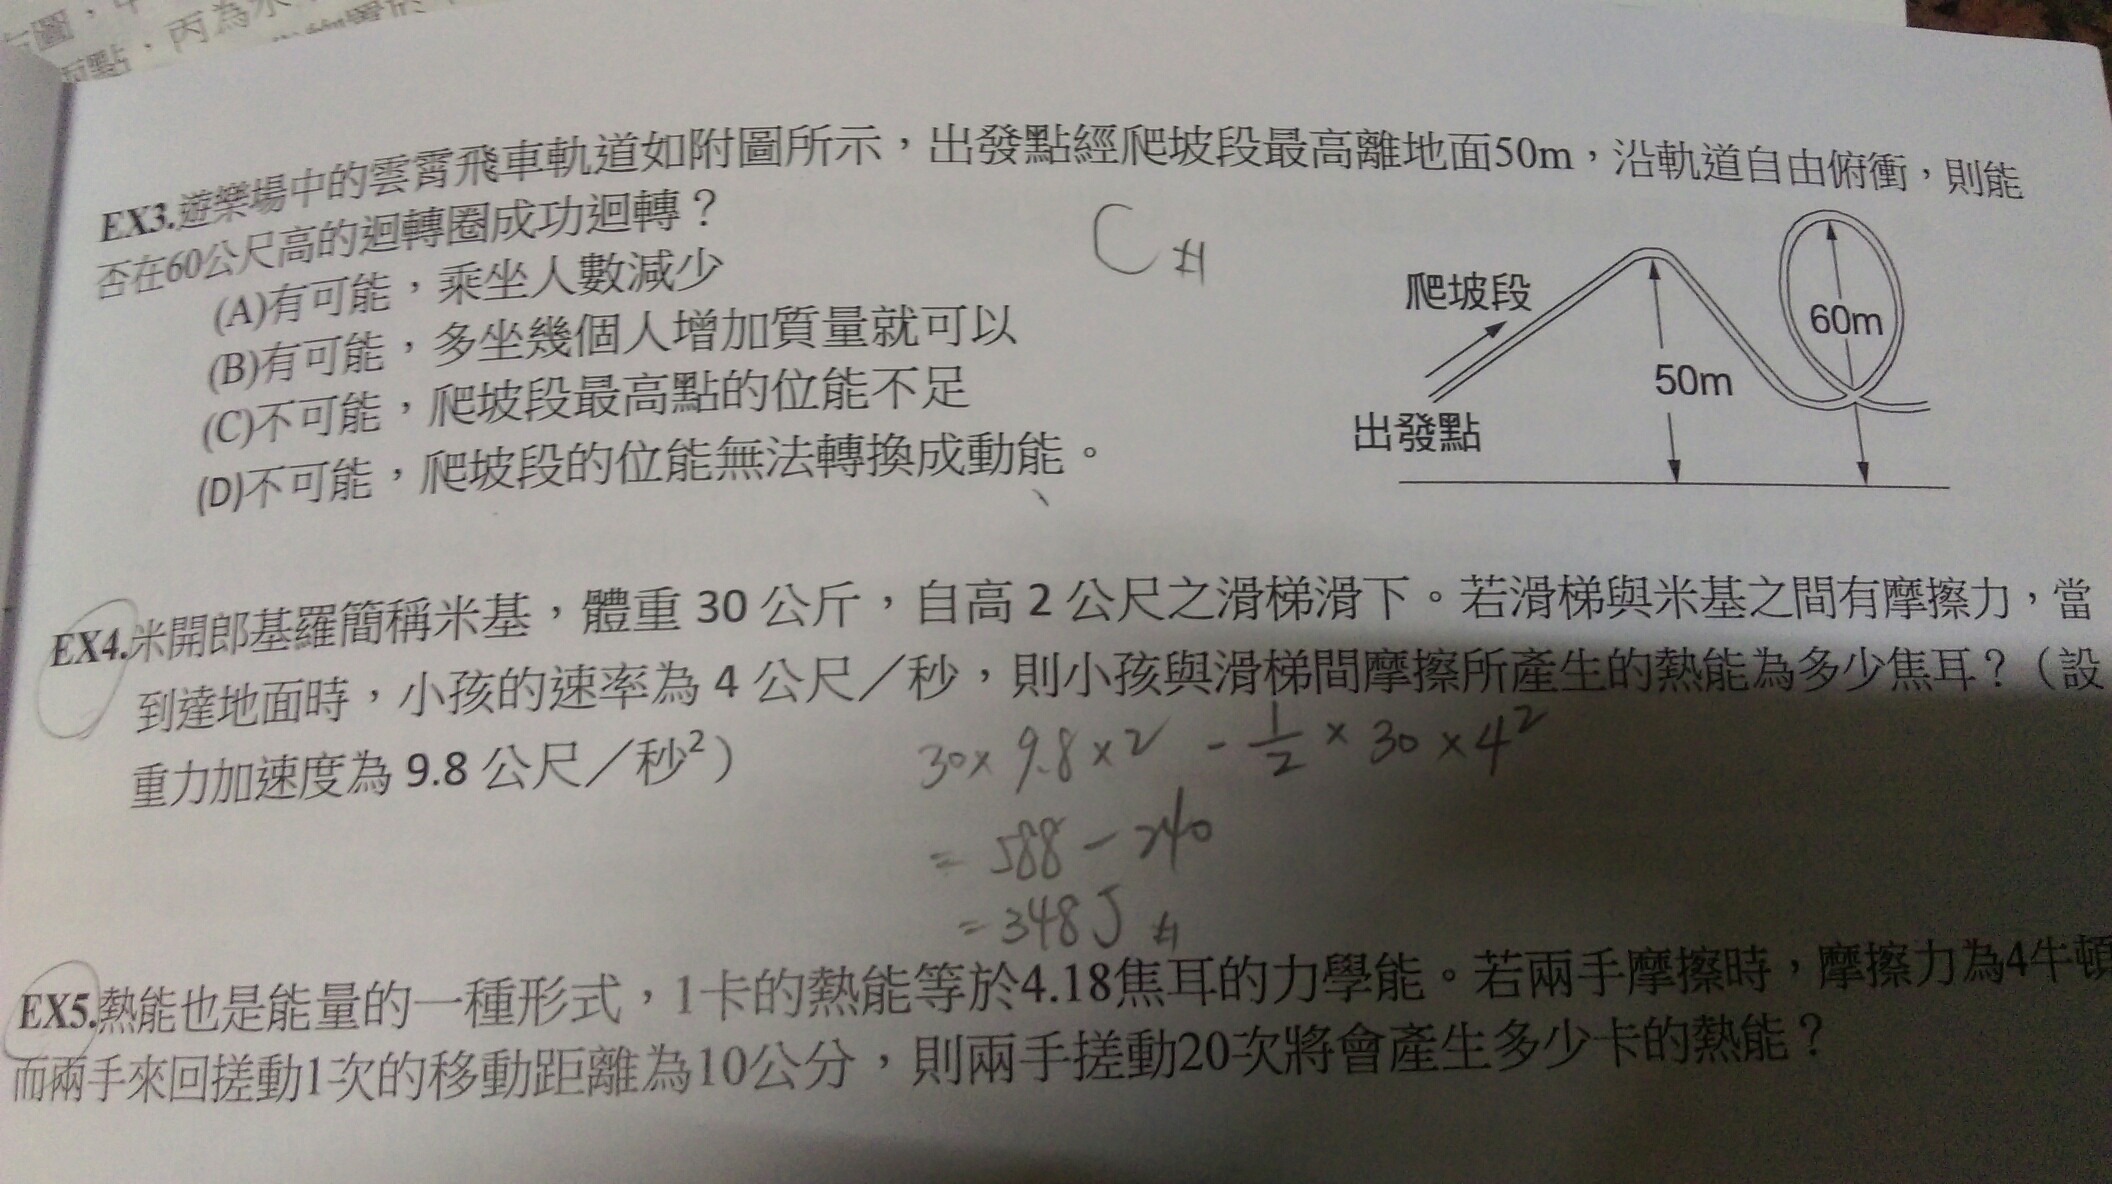 丙為水
EX3.遊樂場中的雲霄飛車軌道如附圖所示，出發點經爬坡段最高離地面50m，沿軌道自由俯衝，則能
否在60公尺高的迴轉圈成功迴轉？
C#
(A)有可能，乘坐人數減少
(B)有可能，多坐幾個人增加質量就可以
(C)不可能，爬坡段最高點的位能不足
(D)不可能，爬坡段的位能無法轉換成動能。
爬坡段
60m
50m
出發點
EX4.米開郎基羅簡稱米基，體重 30 公斤，自高 2 公尺之滑梯滑下。若滑梯與米基之間有摩擦力，當
到達地面時，小孩的速率為 4 公尺／秒，則小孩與滑梯間摩擦所產生的熱能為多少焦耳？（設
重力加速度為 9.8 公尺／秒²）
30×9.8×2 - 1/2 × 30 × 4²
= 588 - 240
= 348J #
EX5.熱能也是能量的一種形式，1卡的熱能等於4.18焦耳的力學能。若兩手摩擦時，摩擦力為4牛頓
而兩手來回搓動1次的移動距離為10公分，則兩手搓動20次將會產生多少卡的熱能？